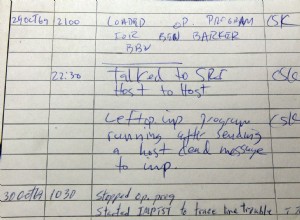 29OCT69 2100 LOADED OP. PROGRAM CSK
FOR BEN BARKER
BBN
22:30 Talked to SRI CSK
Host to Host
Left op. imp program CSK
running after sending
a host dead message
to imp.
30OCT69 1030 Stopped op. prog
Started IMPTST to trace line trouble